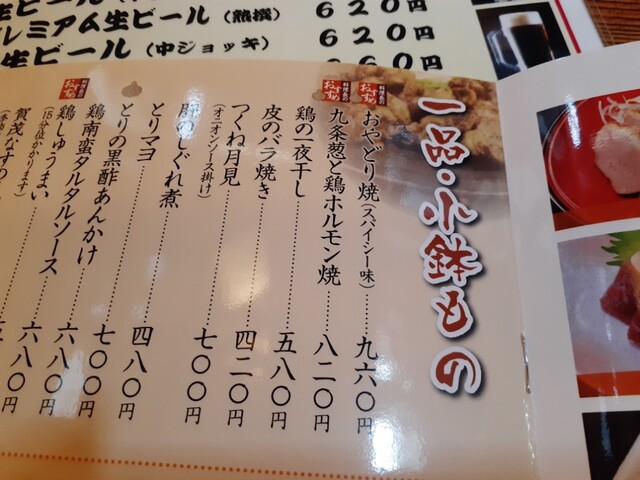 プレミアム生ビール（熟撰） 620円
生ビール（中ジョッキ） 620円
一品・小鉢もの
料理長のおすすめ
おやどり焼（スパイシー味）……九六〇円
料理長のおすすめ
九条葱と鶏ホルモン焼…八二〇円
鶏の一夜干し……五八〇円
皮のバラ焼き……四二〇円
つくね月見……七〇〇円
（オニオンソース掛け）
肝のしぐれ煮……四八〇円
とりマヨ……七〇〇円
とりの黒酢あんかけ……六八〇円
料理長のおすすめ
鶏南蛮タルタルソース…六八〇円
鶏しゅうまい……五
（15分位かかります）
賀茂なすの